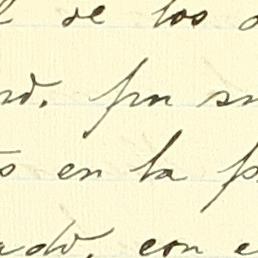 de los
por su
en la
ado, con